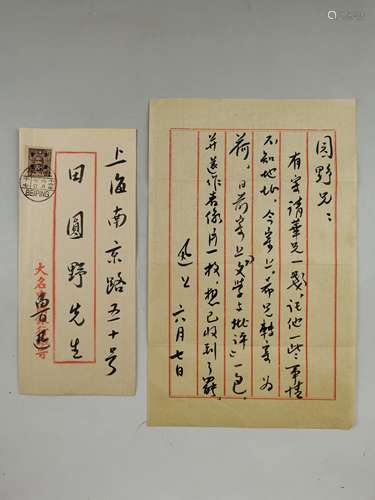 上海南京路五十号
田圓野先生
大名
BEIPING
园野兄：
有請華兄一託他一些事情
不知地址，今寄上，希兄轉交為
荷。日前寄上"文學与批评"一包
并送作者像片一枚，想已收到了罷。
迅上 六月七日